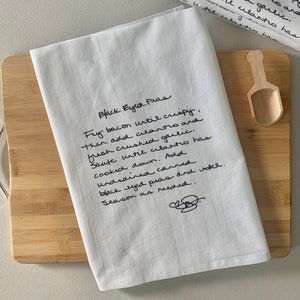 Black Eyed Peas
Fry bacon until crispy,
then add cilantro and
fresh crushed garlic.
Saute until cilantro has
cooked down. Add
undrained canned
black eyed peas and
Season as needed.